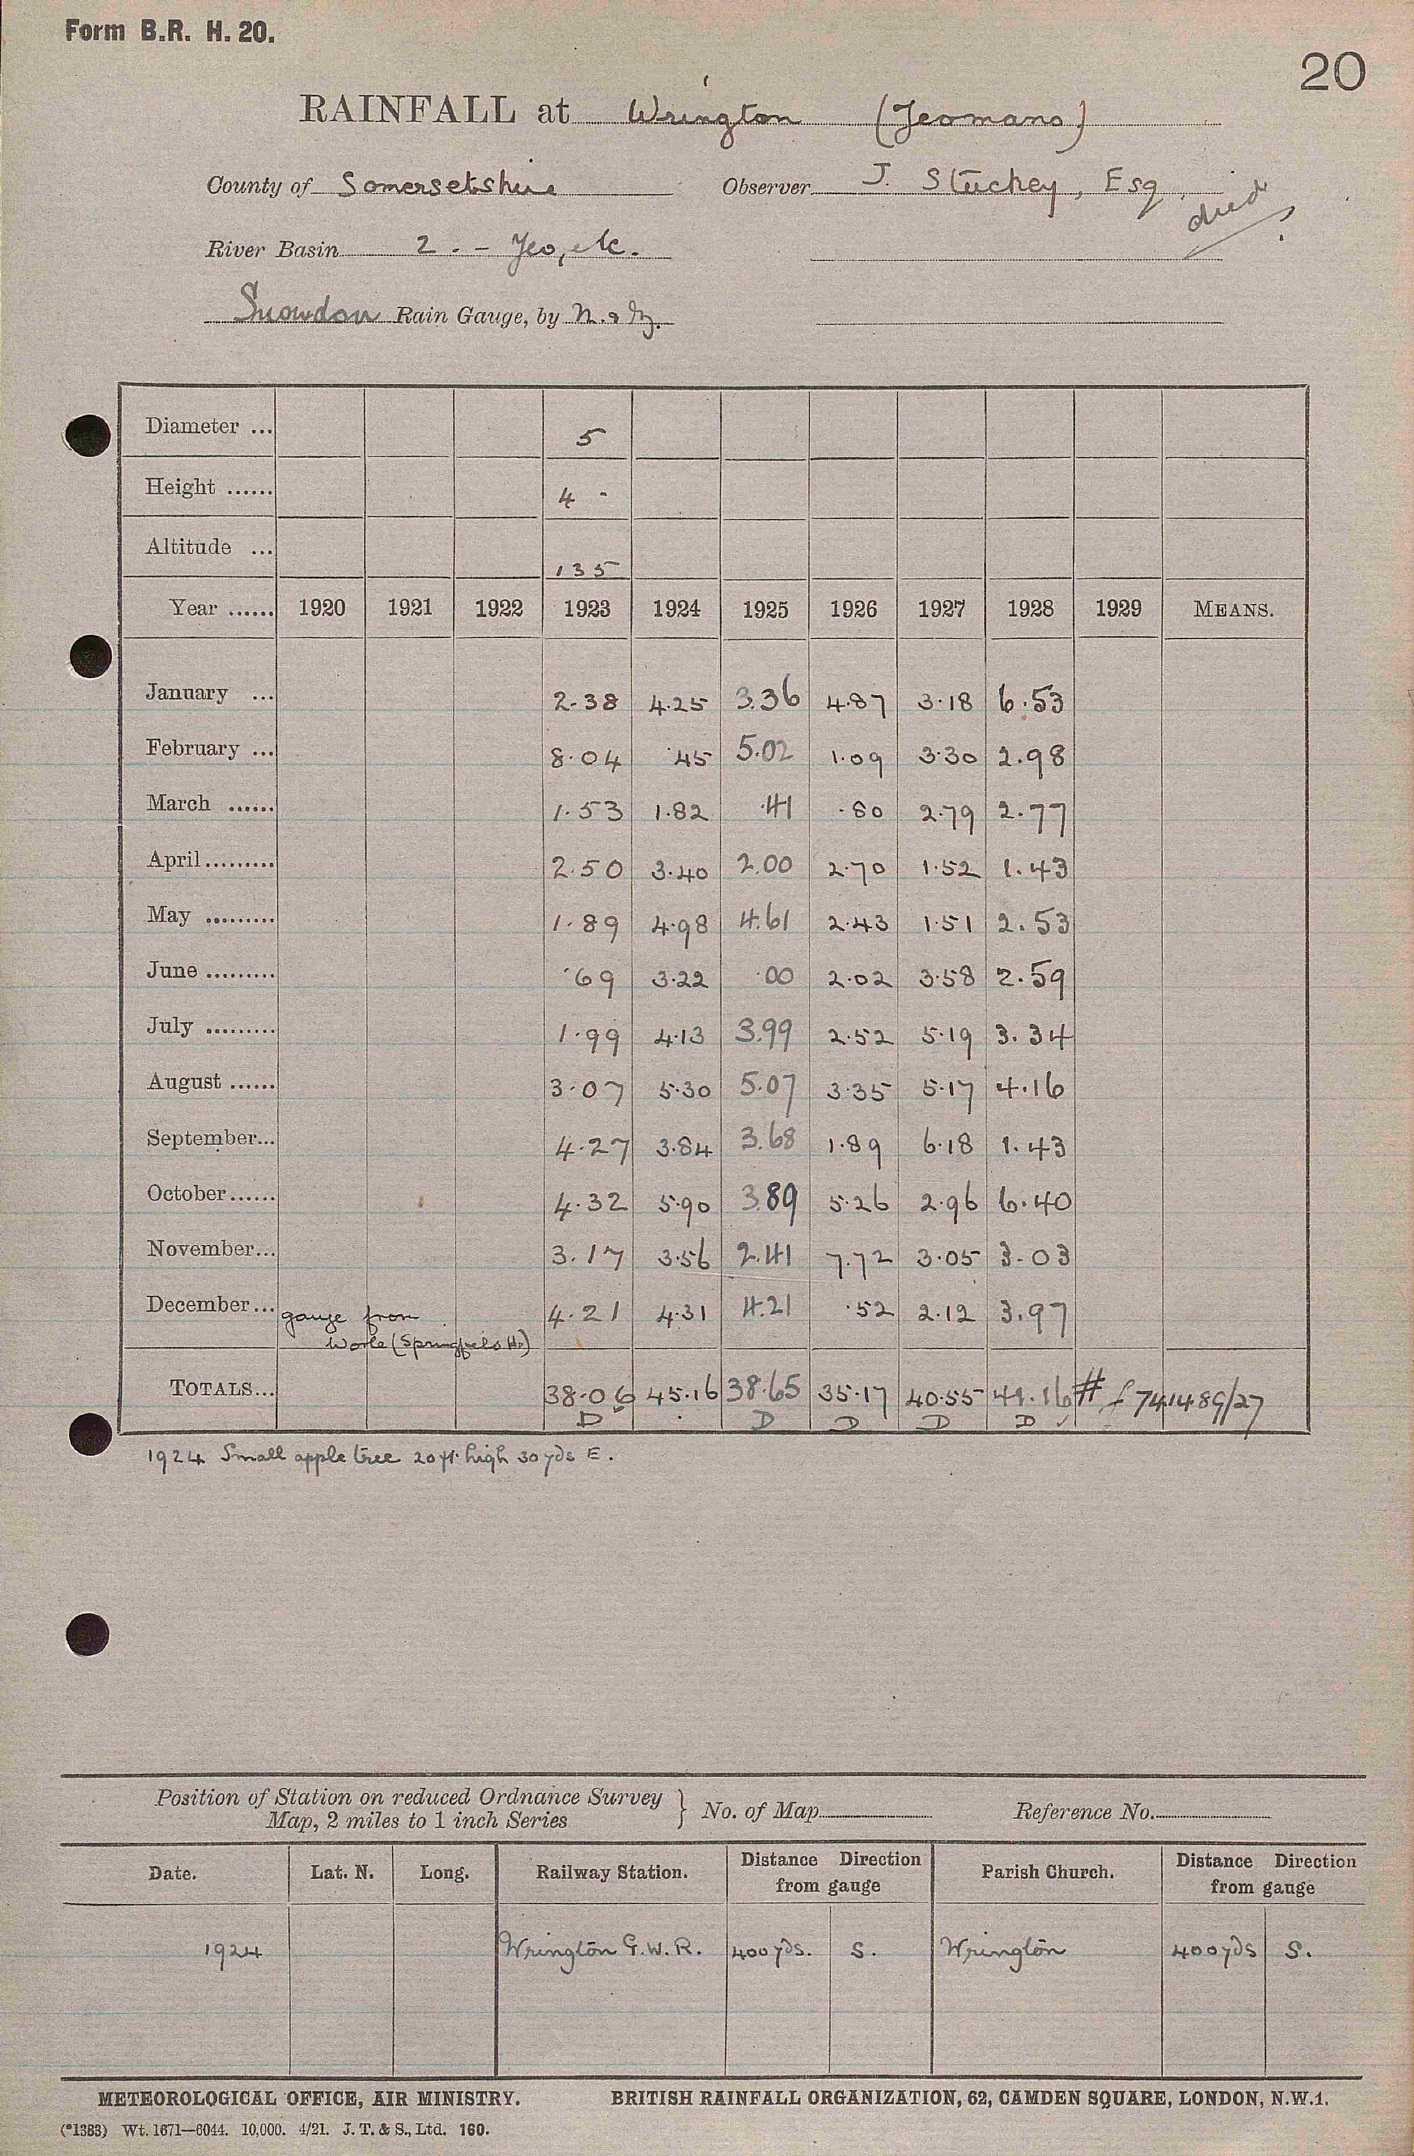 Form B.R. H. 20.
20
RAINFALL at Wrington (Yeomans)
County of Somersetshire Observer J. Stuckey, Esq.
died
River Basin 2. - Yeo, etc.
Snowdon Rain Gauge, by N. & Z.
Diameter ... 5
Height ...... 4 -
Altitude ... 135
Year ...... 1920 1921 1922 1923 1924 1925 1926 1927 1928 1929 MEANS.
January ... 2.38 4.25 3.36 4.87 3.18 6.53
February ... 8.04 .45 5.02 1.09 3.30 2.98
March ...... 1.53 1.82 .41 .80 2.79 2.77
April......... 2.50 3.40 2.00 2.70 1.52 1.43
May ......... 1.89 4.98 4.61 2.43 1.51 2.53
June ......... .69 3.22 .00 2.02 3.58 2.59
July ......... 1.99 4.13 3.99 2.52 5.19 3.34
August ...... 3.07 5.30 5.07 3.35 5.17 4.16
September... 4.27 3.84 3.68 1.89 6.18 1.43
October...... 4.32 5.90 3.89 5.26 2.96 6.40
November... 3.17 3.56 2.41 7.72 3.05 3.03
December... gauge from 4.21 4.31 4.21 .52 2.12 3.97
Worle (Springfield Ho)
TOTALS... 38.06 45.16 38.65 35.17 40.55 41.16 # f 741489/27
D D D D D
1924 Small apple tree 20 ft. high 30 yds E.
Position of Station on reduced Ordnance Survey
Map, 2 miles to 1 inch Series } No. of Map Reference No.
Date. Lat. N. Long. Railway Station. Distance Direction from gauge Parish Church. Distance Direction from gauge
1924 Wrington G.W.R. 400 yds. S. Wrington 400 yds S.
METEOROLOGICAL OFFICE, AIR MINISTRY. BRITISH RAINFALL ORGANIZATION, 62, CAMDEN SQUARE, LONDON, N.W.1.
(*1383) Wt. 1671—6044. 10,000. 4/21. J. T. & S., Ltd. 160.